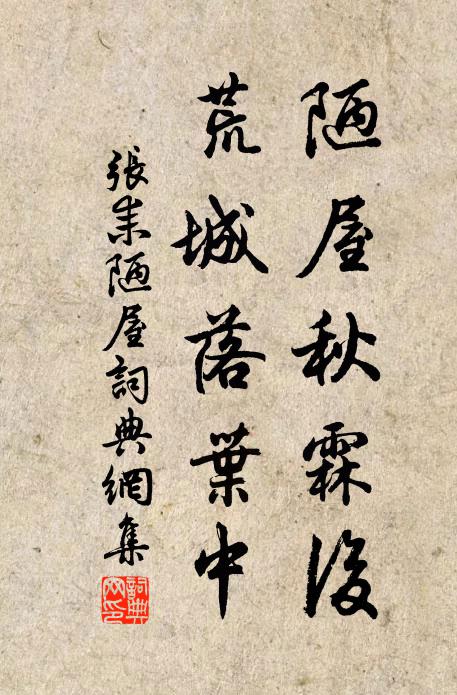 陋屋秋霖後
荒城落葉中
張耒陋屋詞典網集
詞典網印